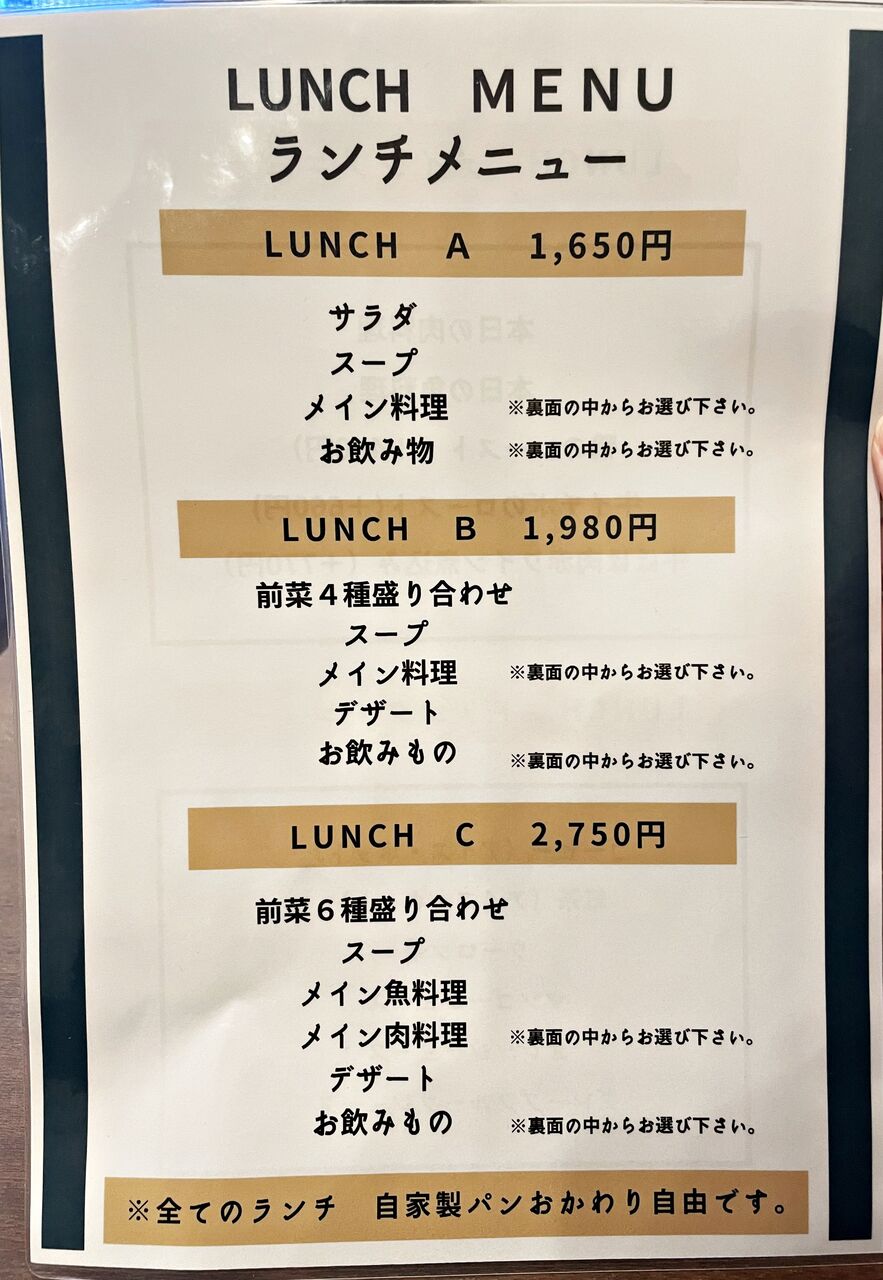 LUNCH MENU
ランチメニュー
LUNCH A 1,650円
サラダ
スープ
メイン料理 ※裏面の中からお選び下さい。
お飲み物 ※裏面の中からお選び下さい。
LUNCH B 1,980円
前菜4種盛り合わせ
スープ
メイン料理 ※裏面の中からお選び下さい。
デザート
お飲みもの ※裏面の中からお選び下さい。
LUNCH C 2,750円
前菜6種盛り合わせ
スープ
メイン魚料理
メイン肉料理 ※裏面の中からお選び下さい。
デザート
お飲みもの ※裏面の中からお選び下さい。
※全てのランチ 自家製パンおかわり自由です。